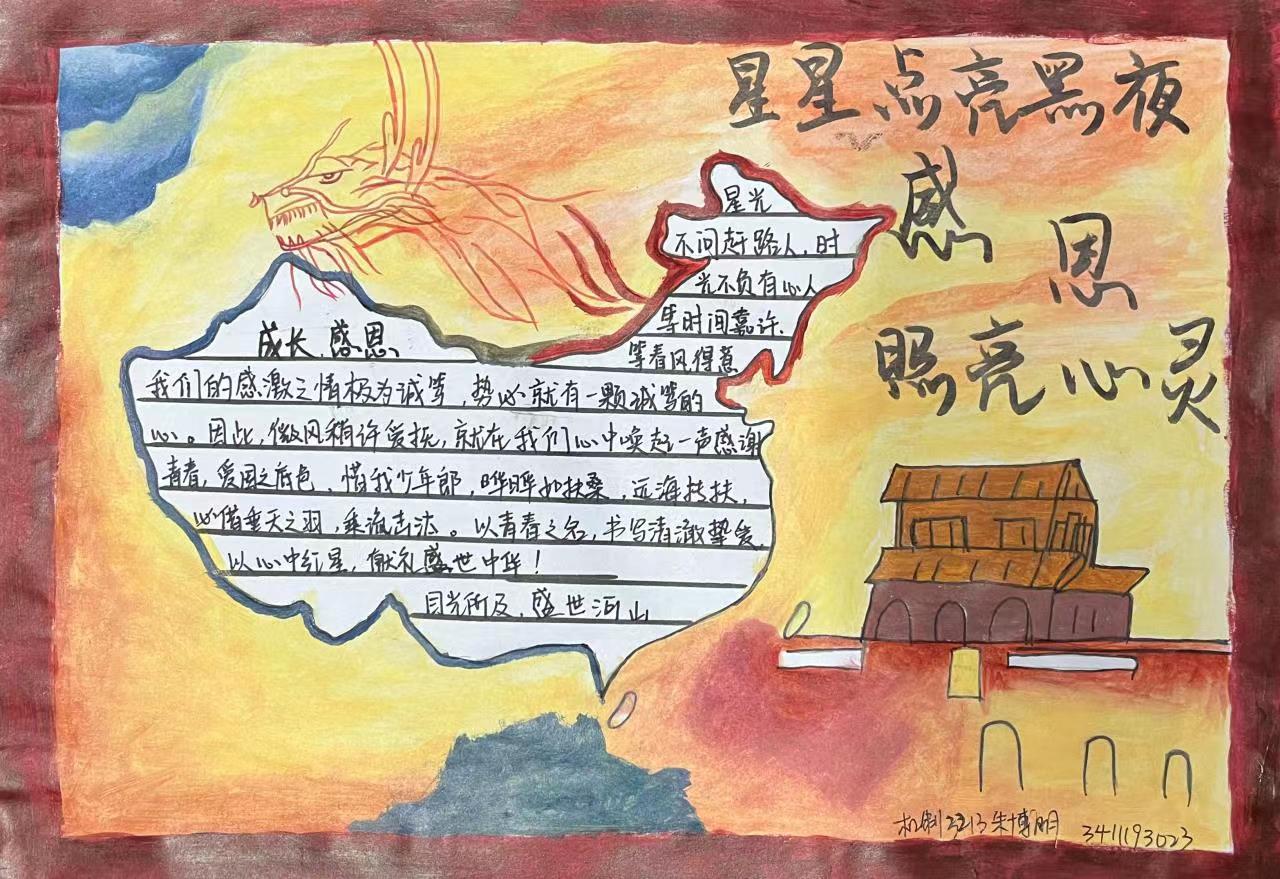 星星点亮黑夜
感恩
照亮心灵
星光
不问赶路人，时
光不负有心人
等时间嘉许，
等春风得意
成长、感恩
我们的感激之情极为诚笃，势必就有一颗诚笃的
心。因此，微风稍许爱抚，就在我们心中唤起一声感谢
青春，爱国之底色、惜我少年郎，晔晔如扶桑，远海扶扶，
心借垂天之羽，乘流击法。以青春之名，书写清澈挚爱
以心中红星，献礼盛世中华！
目光所及，盛世河山
机制2213朱博明 3411193023